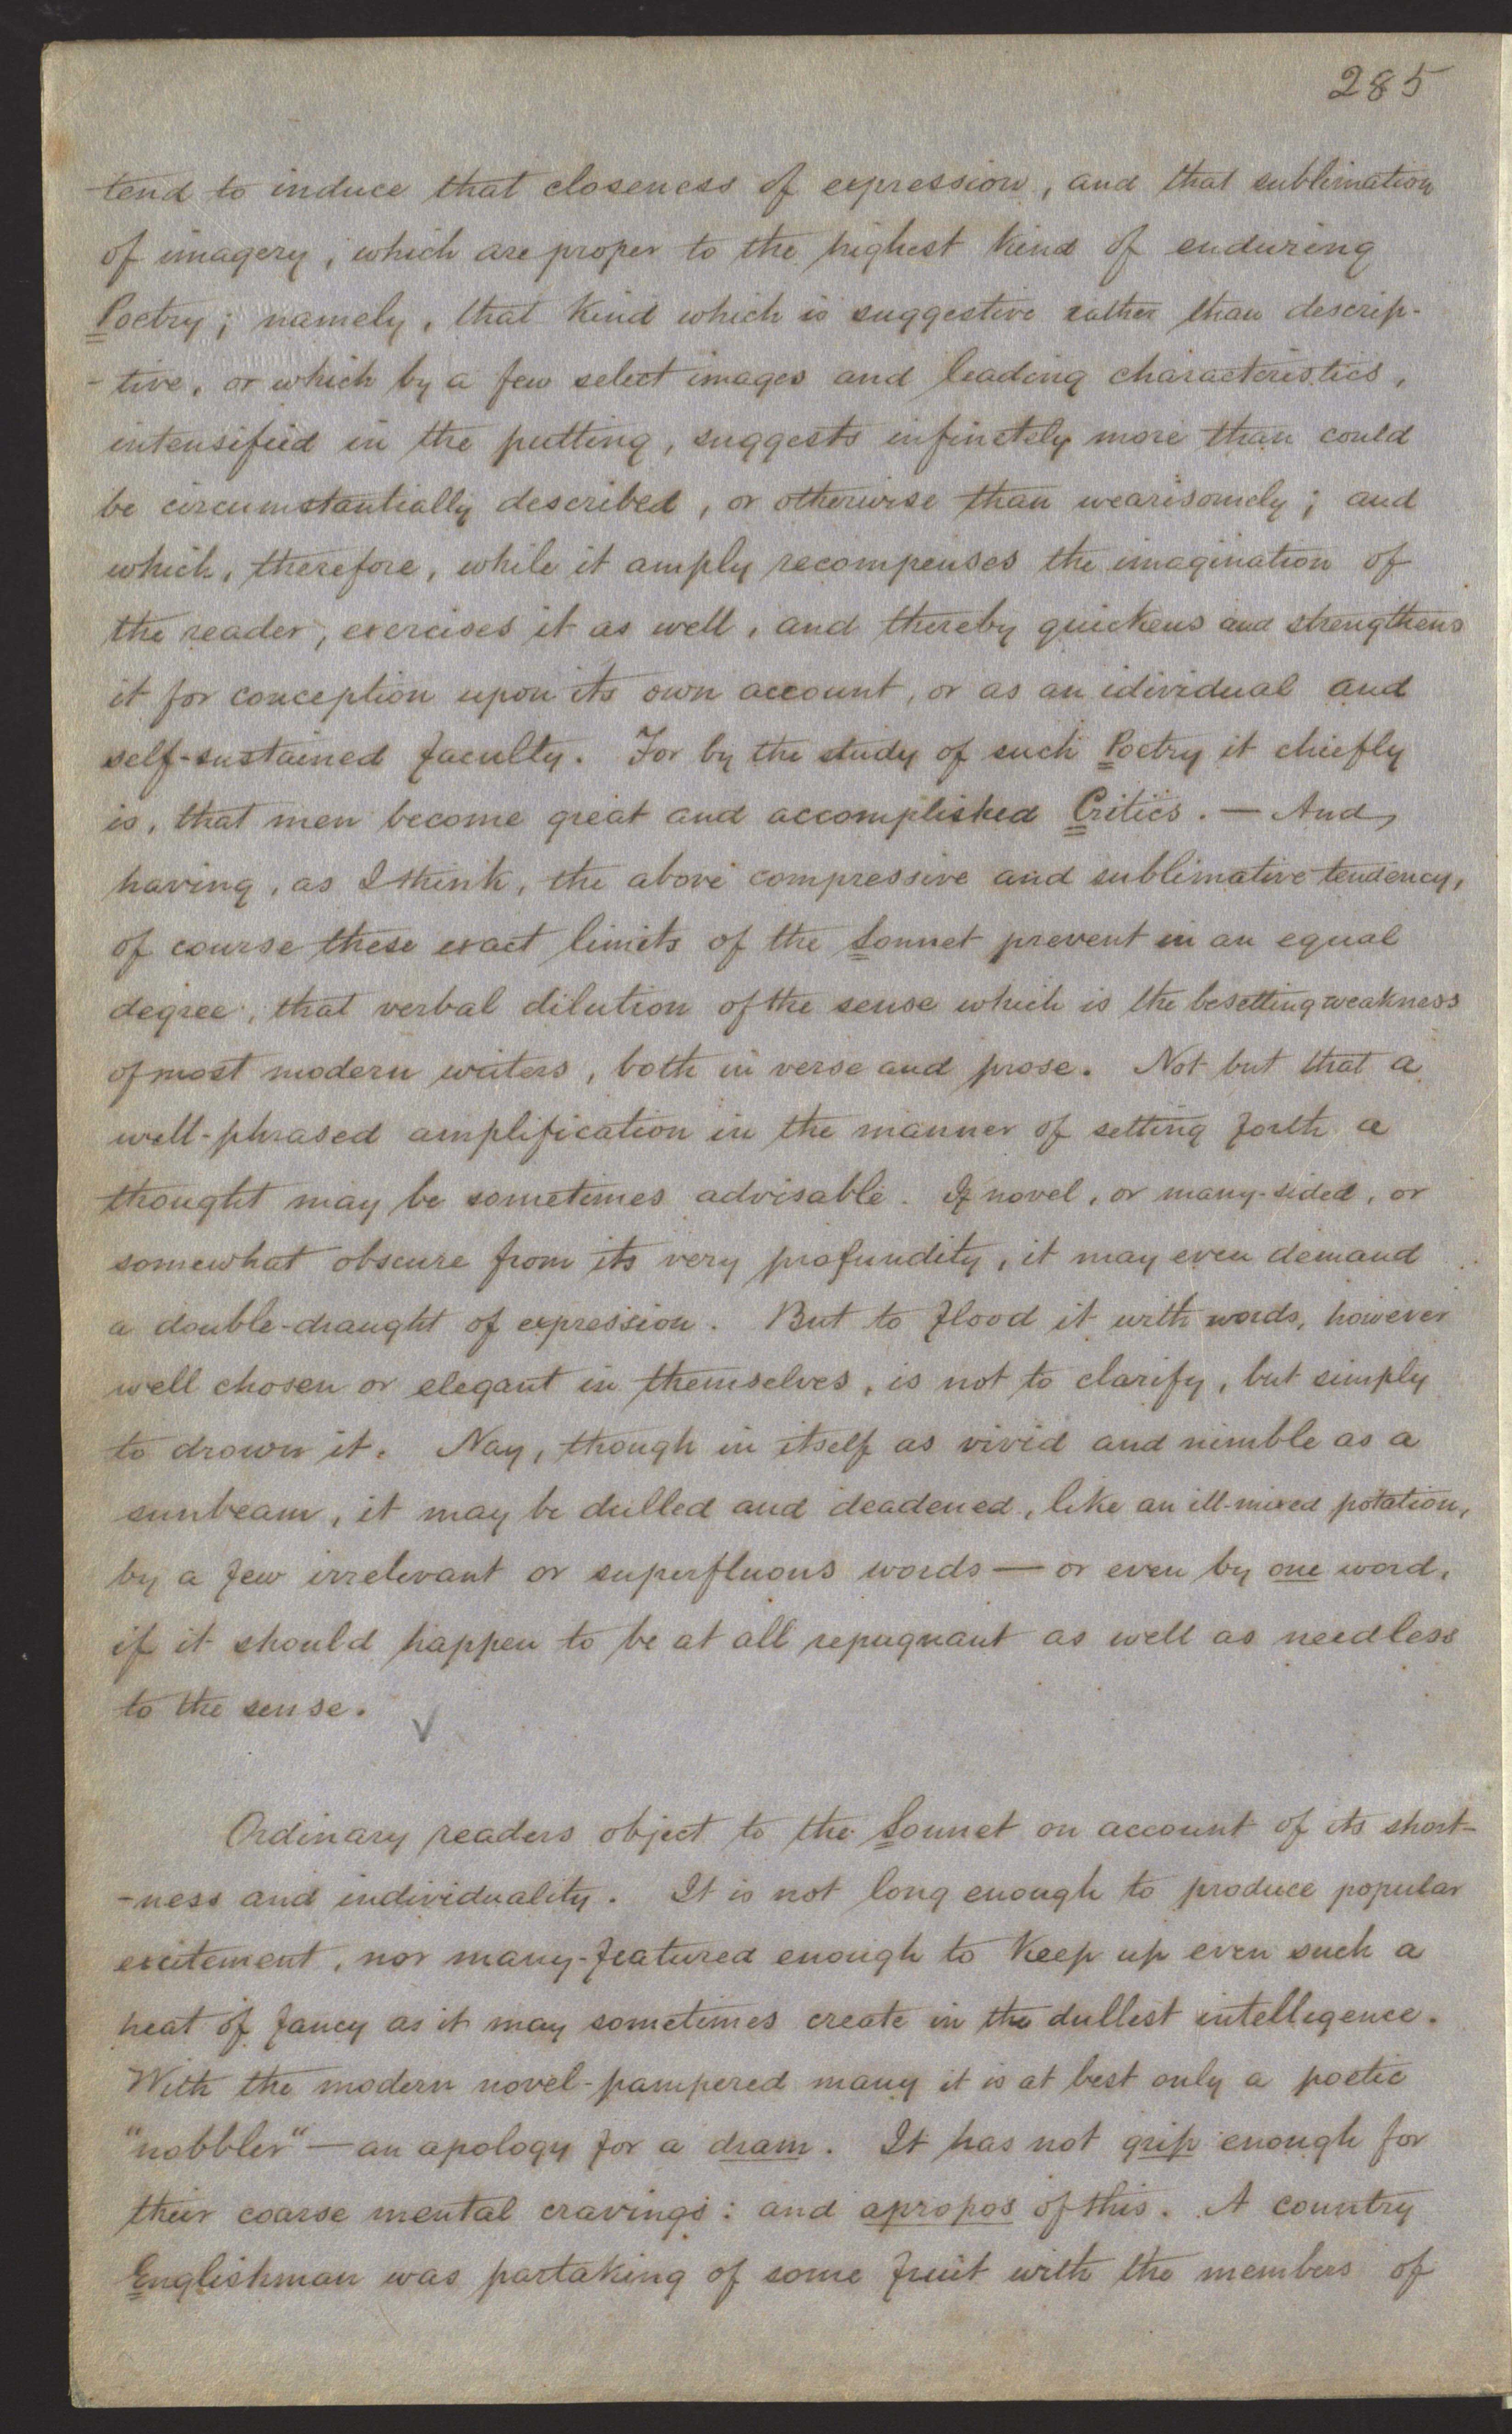 285
tend to induce that closeness of expression, and that sublimation
of imagery, which are proper to the highest kind of enduring
Poetry; namely, that kind which is suggestive rather than descrip-
-tive, or which by a few select images and leading characteristics,
intensified in the putting, suggests infinetely more than could
be circumstantially described, or otherwise than wearisomely; and
which, therefore, while it amply recompenses the imagination of
the reader, exercises it as well, and thereby quickens and strengthens
it for conception upon its own account, or as an idividual and
self-sustained faculty. For by the study of such Poetry it chiefly
is, that men become great and accomplished Critics. — And,
having, as I think, the above compressive and sublimative tendency,
of course these exact limits of the Sonnet prevent in an equal
degree, that verbal dilution of the sense which is the besetting weakness
of most modern writers, both in verse and prose. Not but that a
well-phrased amplification in the manner of setting forth a
thought may be sometimes advisable. If novel, or many-sided, or
somewhat obscure from its very profundity, it may even demand
a double-draught of expression. But to flood it with words, however
well chosen or elegant in themselves, is not to clarify, but simply
to drown it. Nay, though in itself as vivid and nimble as a
sunbeam, it may be dulled and deadened, like an ill-mixed potation,
by a few irrelevant or superfluous words — or even by one word,
if it should happen to be at all repugnant as well as needless
to the sense.
Ordinary readers object to the Sonnet on account of its short-
-ness and individuality. It is not long enough to produce popular
excitement, nor many-featured enough to keep up even such a
heat of fancy as it may sometimes create in the dullest intelligence.
With the modern novel-pampered many it is at best only a poetic
"nobbler" — an apology for a dram. It has not grip enough for
their coarse mental cravings: and apropos of this. A country
Englishman was partaking of some fruit with the members of